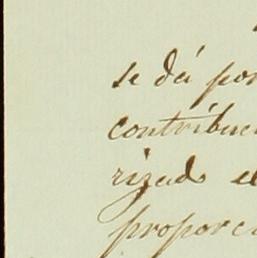 se dá por
contribuci
rizado el
proporci